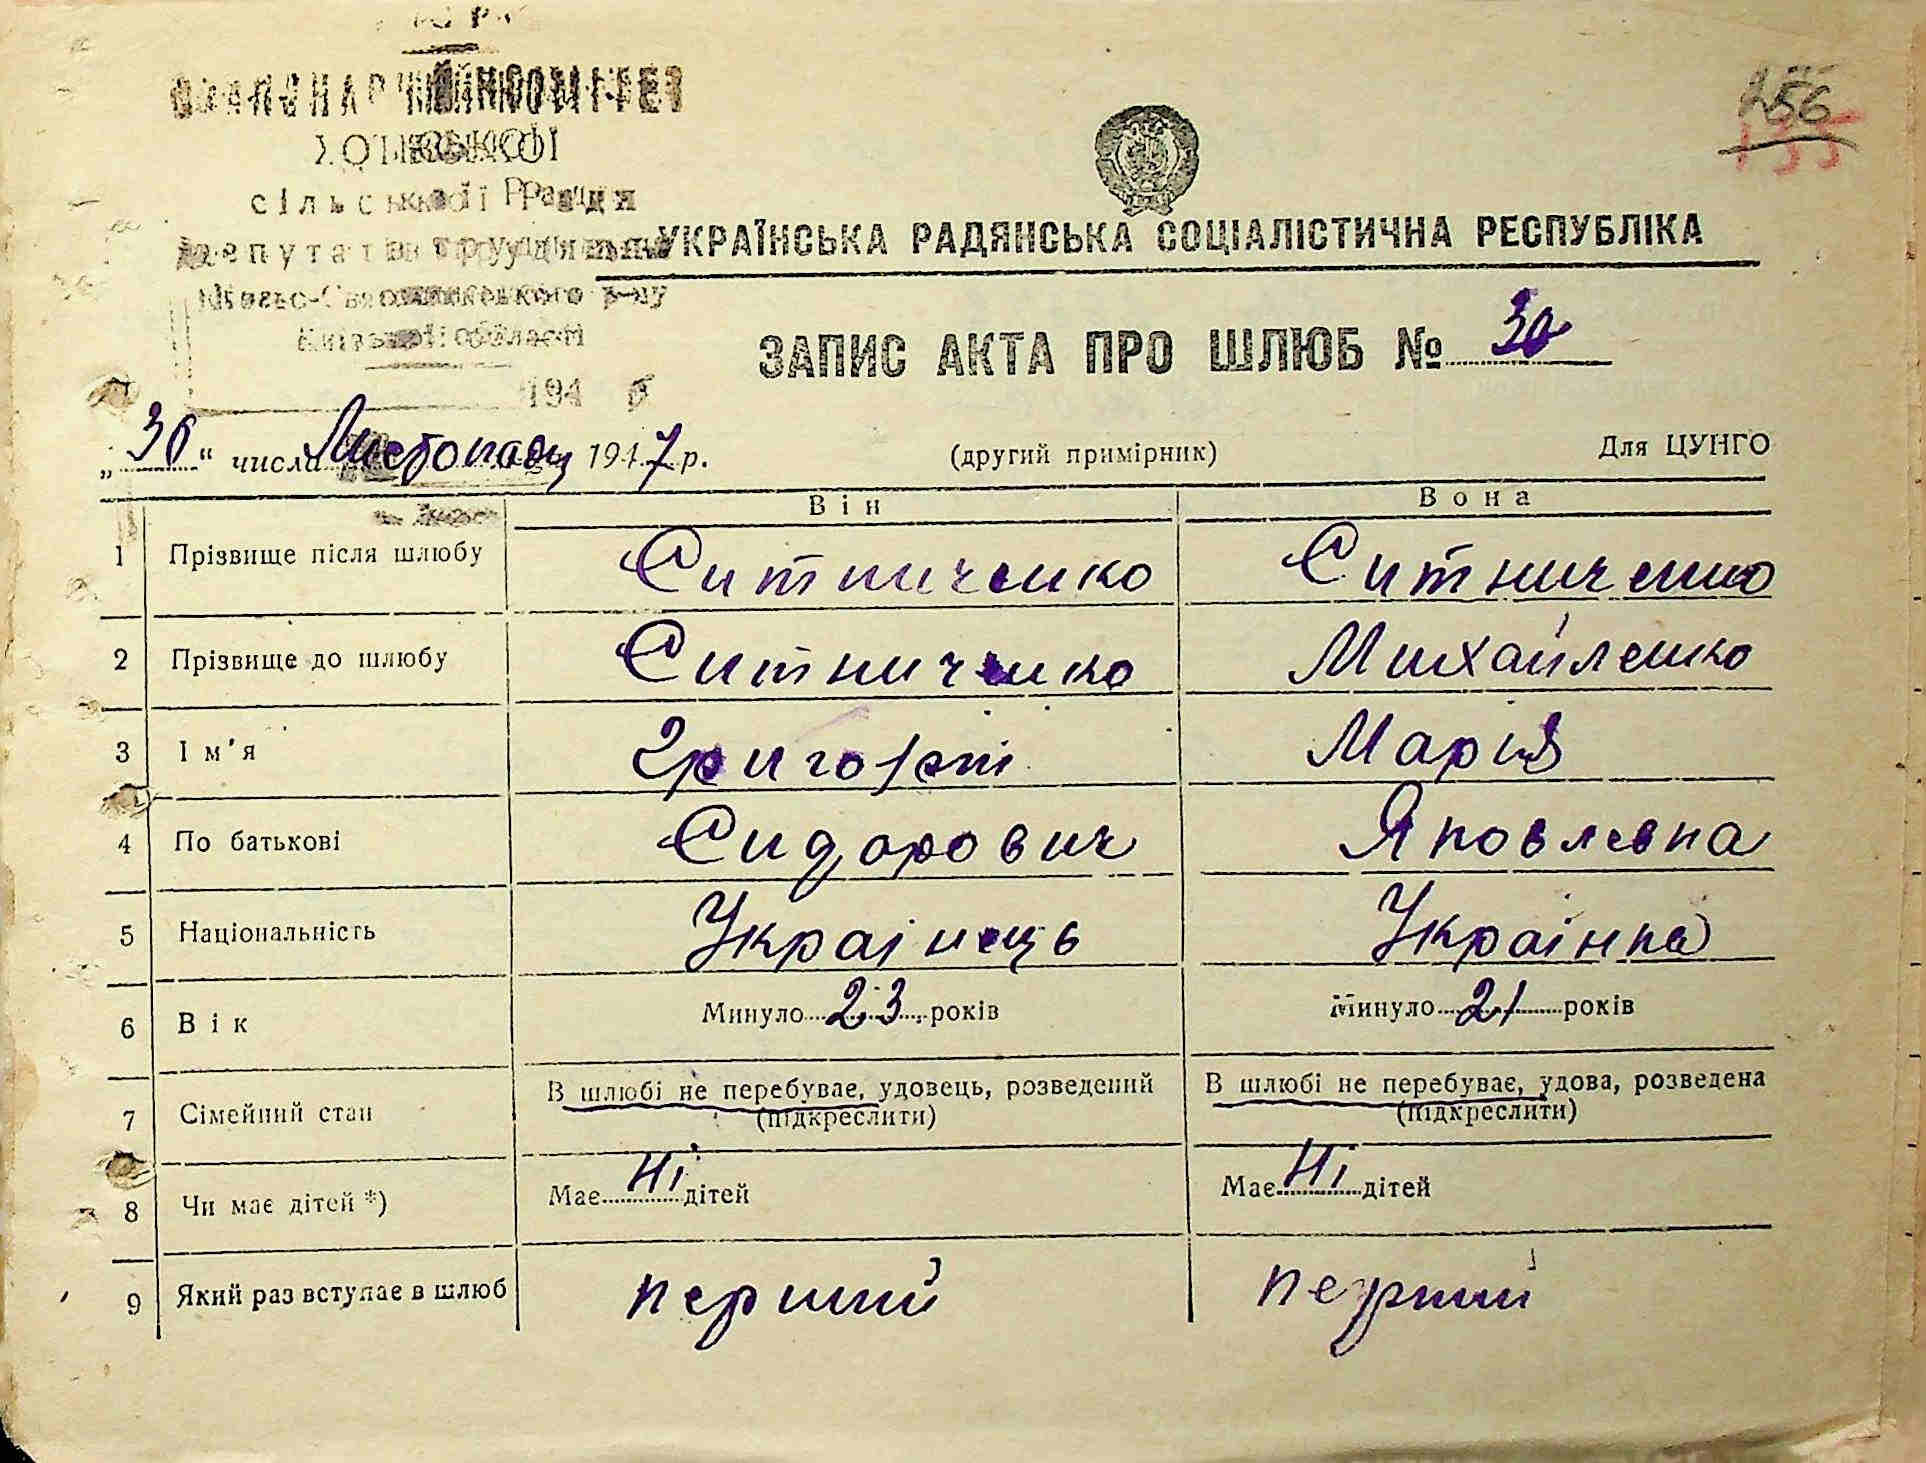 сільської Ради
депутатів трудящих
Києво-Святошинського р-ну
Київської області
194
256
135
УКРАЇНСЬКА РАДЯНСЬКА СОЦІАЛІСТИЧНА РЕСПУБЛІКА
ЗАПИС АКТА ПРО ШЛЮБ № 30
„30" числа Листопада 1947 р.
(другий примірник)
Для ЦУНГО
Він Вона
1 Прізвище після шлюбу Ситниченко Ситниченко
2 Прізвище до шлюбу Ситниченко Михайленко
3 Ім'я Григорій Марія
4 По батькові Сидорович Яковлевна
5 Національність Украінець Украінка
6 Вік Минуло 23 років Минуло 21 років
7 Сімейний стан В шлюбі не перебуває, удовець, розведений В шлюбі не перебуває, удова, розведена
(підкреслити) (підкреслити)
8 Чи має дітей *) Має Ні дітей Має Ні дітей
9 Який раз вступає в шлюб перший перший